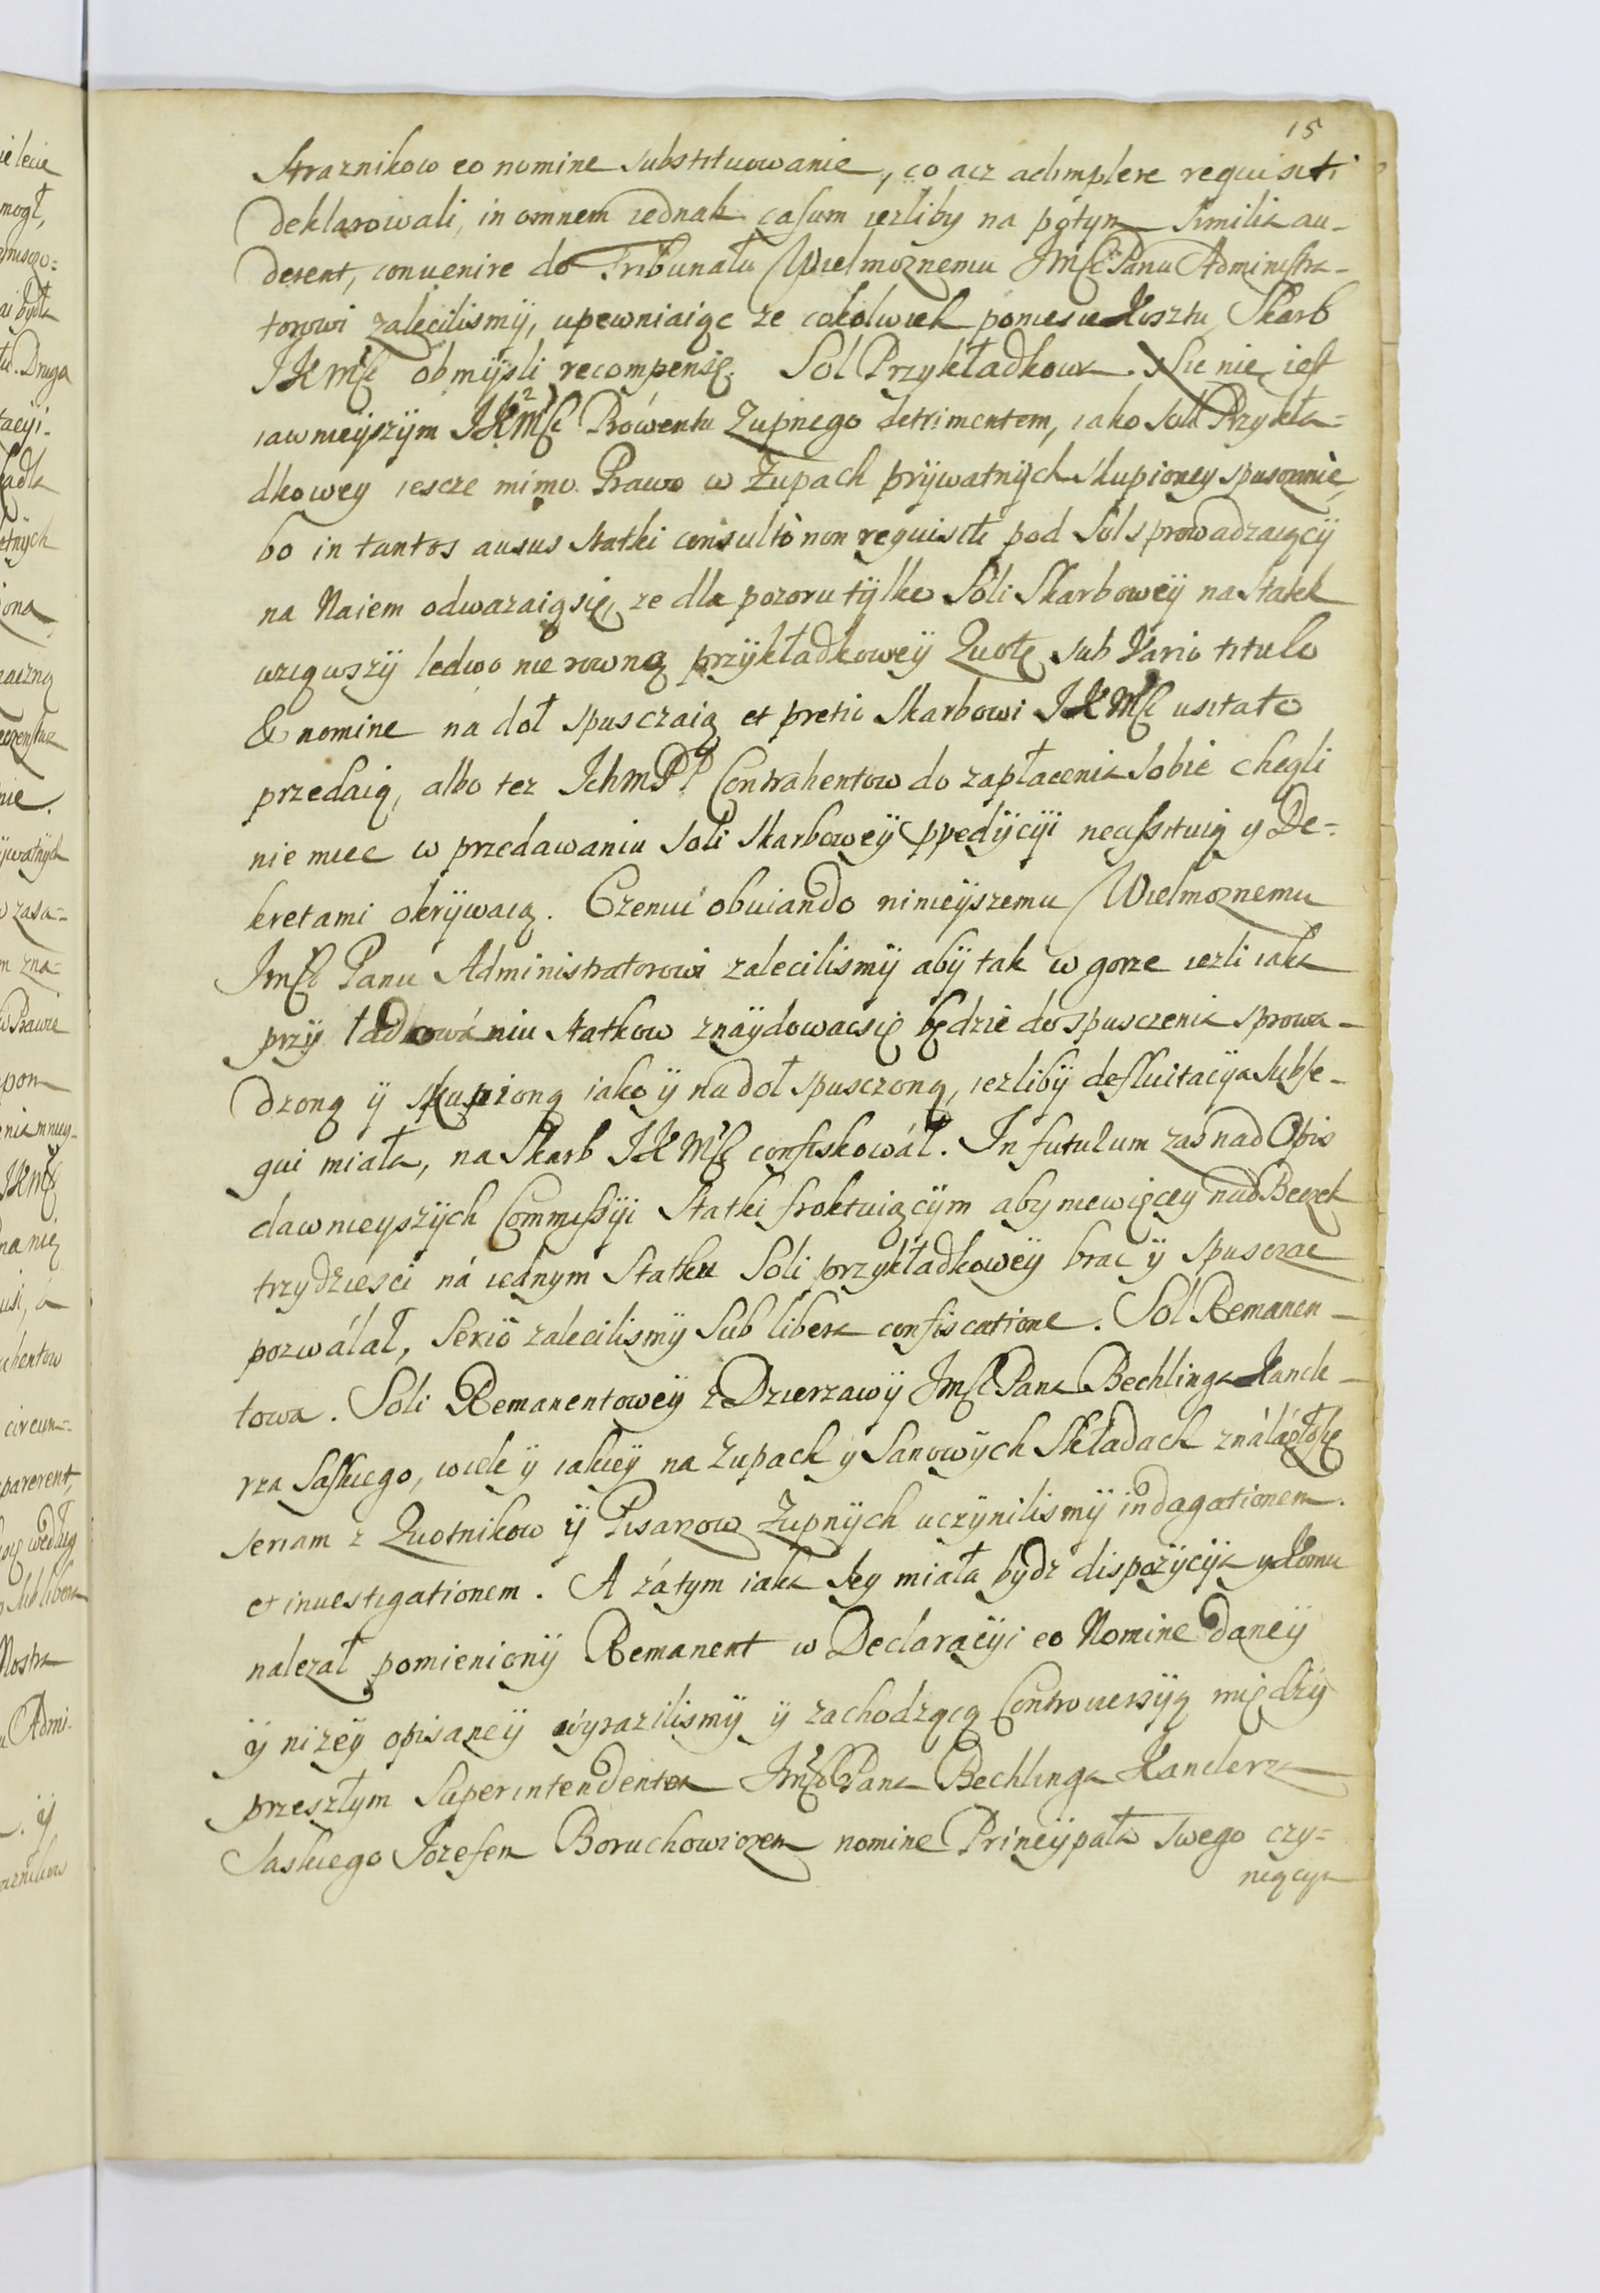 15
Straznikow eo nomine substituowanie, co acz adimplere requisiti
deklarowali, in omnem iednak casum iezliby na potym similia au-
derent, conuenire do Tribunału Wielmoznemu Jmsć Panu Administra-
torowi zalecilismÿ, upewniaiąc ze cokolwiek poniesie Kosztu Skarb
JKMsć obmÿsli recompensę. Sol Przykładkowa. Nic nie iest
iawnieÿszÿm JKMsć Prowentu Zupnego detrimentem, iako Soli Przykła-
dkowey iescze mimo Prawo w Zupach prÿwatnÿch skupioney spusczanie,
bo in tantos ausus statki consultò non requisiti pod Sol sprowadzaiącÿ
na Naiem odwazaią się, ze dla pozoru tÿlko Soli Skarboweÿ na Statek
wziąwszÿ ledwo nie rowną przÿkładkoweÿ Quotę sub Vario titulo
& nomine na doł spusczaią et pretio Skarbowi JKMsć usitato
przedaią, albo tez IchmPP Contrahentow do zapłacenia sobie chegli
nie miec w przedawaniu Soli Skarboweÿ ppedÿcÿi necessituią y De-
kretami okrÿwaią. Czemu obuiando ninieÿszemu Wielmoznemu
Jmsć Panu Administratorowi zalecilismÿ abÿ tak w gorze iezli iaka
przÿ ładowaniu statkow znaÿdowac się będzie do spusczenia sprowa-
dzoną ÿ skupioną iako ÿ na doł spusczoną, iezlibÿ defluitacÿa subse-
qui miała, na Skarb JKMsć confiskowáł. In futurum zaś nad Opis
dawnieyszÿch Commissÿi Statki froktuiącÿm aby niewięcey nad Beczek
trzydziesci ná iednym Statku Soli przykładkoweÿ brac ÿ spusczac
pozwálał, seriò zalecilismÿ sub libera confiscatione. Sol Remanen-
towa. Soli Remanentoweÿ z Dzierzawÿ Jmsć Pana Bechlinga Kancle-
rza Saskiego, wiele ÿ iakieÿ na Zupach y Sanowÿch Składach ználázło się
seriam z Quotnikow ÿ Pisarzow Zupnÿch uczÿnilismÿ indagationem
et inuestigationem. A zátym iaka Jey miała bydz dispozÿcÿa y Komu
nalezał pomienionÿ Remanent w Declaracÿi eo Nomine daneÿ
ÿ nizeÿ opisaneÿ wÿrazilismÿ ÿ zachodzącą Controuersÿą międzÿ
przeszłym Superintendentem Jmsć Pana Bechlinga Kanclerza
Saskiego Jozefem Boruchowiczem nomine Princÿpała swego czy-
niącym